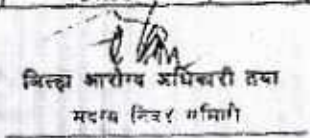 जिल्हा आरोग्य अधिकारी तथा
सदस्य निवड समिती